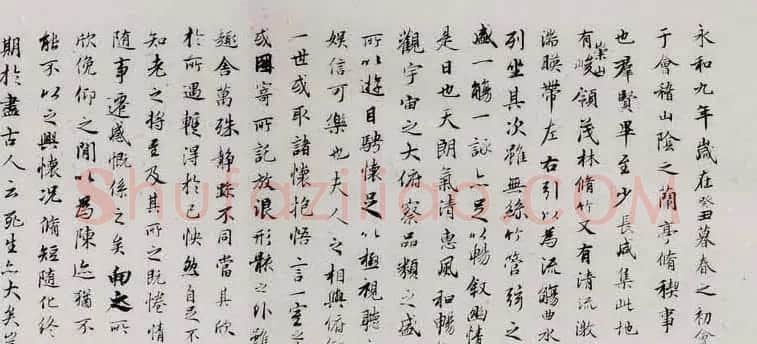 永和九年歲在癸丑暮春之初會
于會稽山陰之蘭亭脩稧事
也群賢畢至少長咸集此地
有崇山峻領茂林脩竹又有清流激
湍暎帶左右引以為流觴曲水
列坐其次雖無絲竹管弦之
盛一觴一詠亦足以暢叙幽情
是日也天朗氣清惠風和暢
觀宇宙之大俯察品類之盛
所以遊目騁懷足以極視聽
娛信可樂也夫人之相與俯
一世或取諸懷抱悟言一室之
或因寄所託放浪形骸之外雖
趣舍萬殊靜躁不同當其欣
於所遇輙得於己快然自足不
知老之將至及其所之既惓情
隨事遷感慨係之矣向之所
欣俛仰之閒以為陳迹猶不
能不以之興懷況脩短隨化終
期於盡古人云死生亦大矣豈
shufaziliao.COM